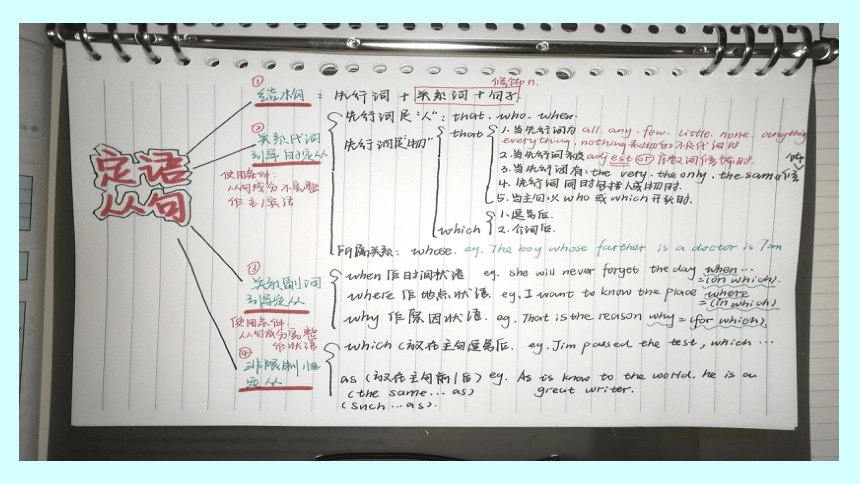 定语从句
① 结构 = 先行词 + 关系词 + 句子
修饰n.
② 关系代词引导的定从
使用条件:
从句成分不完整
作主/宾语
先行词是"人": that. who. when.
先行词是"物"
that
1. 当先行词为 all. any. few. little. none. anything
everything. nothing 
2. 当先行词被 adj est or 序数词修饰时.
3. 当先行词有: the very. the only. the same 修饰
4. 先行词同时包括人或物时.
5. 当主句以 who 或 which 开头时.
which
1. 逗号后.
2. 介词后.
所属关系: whose. eg. The boy whose farther is a doctor is Tom
③ 关系副词引导定从
使用条件
从句成分完整
作状语
when 作时间状语 eg. she will never forget the day when ...
=(on which).
where 作地点状语. eg. I want to know the place where
=(in which)
why 作原因状语. eg. That is the reason why = (for which).
④ 非限制性定从
which (放在主句逗号后. eg. Jim passed the test, which ...
as (放在主句前/后) eg. As is know to the world. he is a
(the same ... as) great writer.
(such ... as).